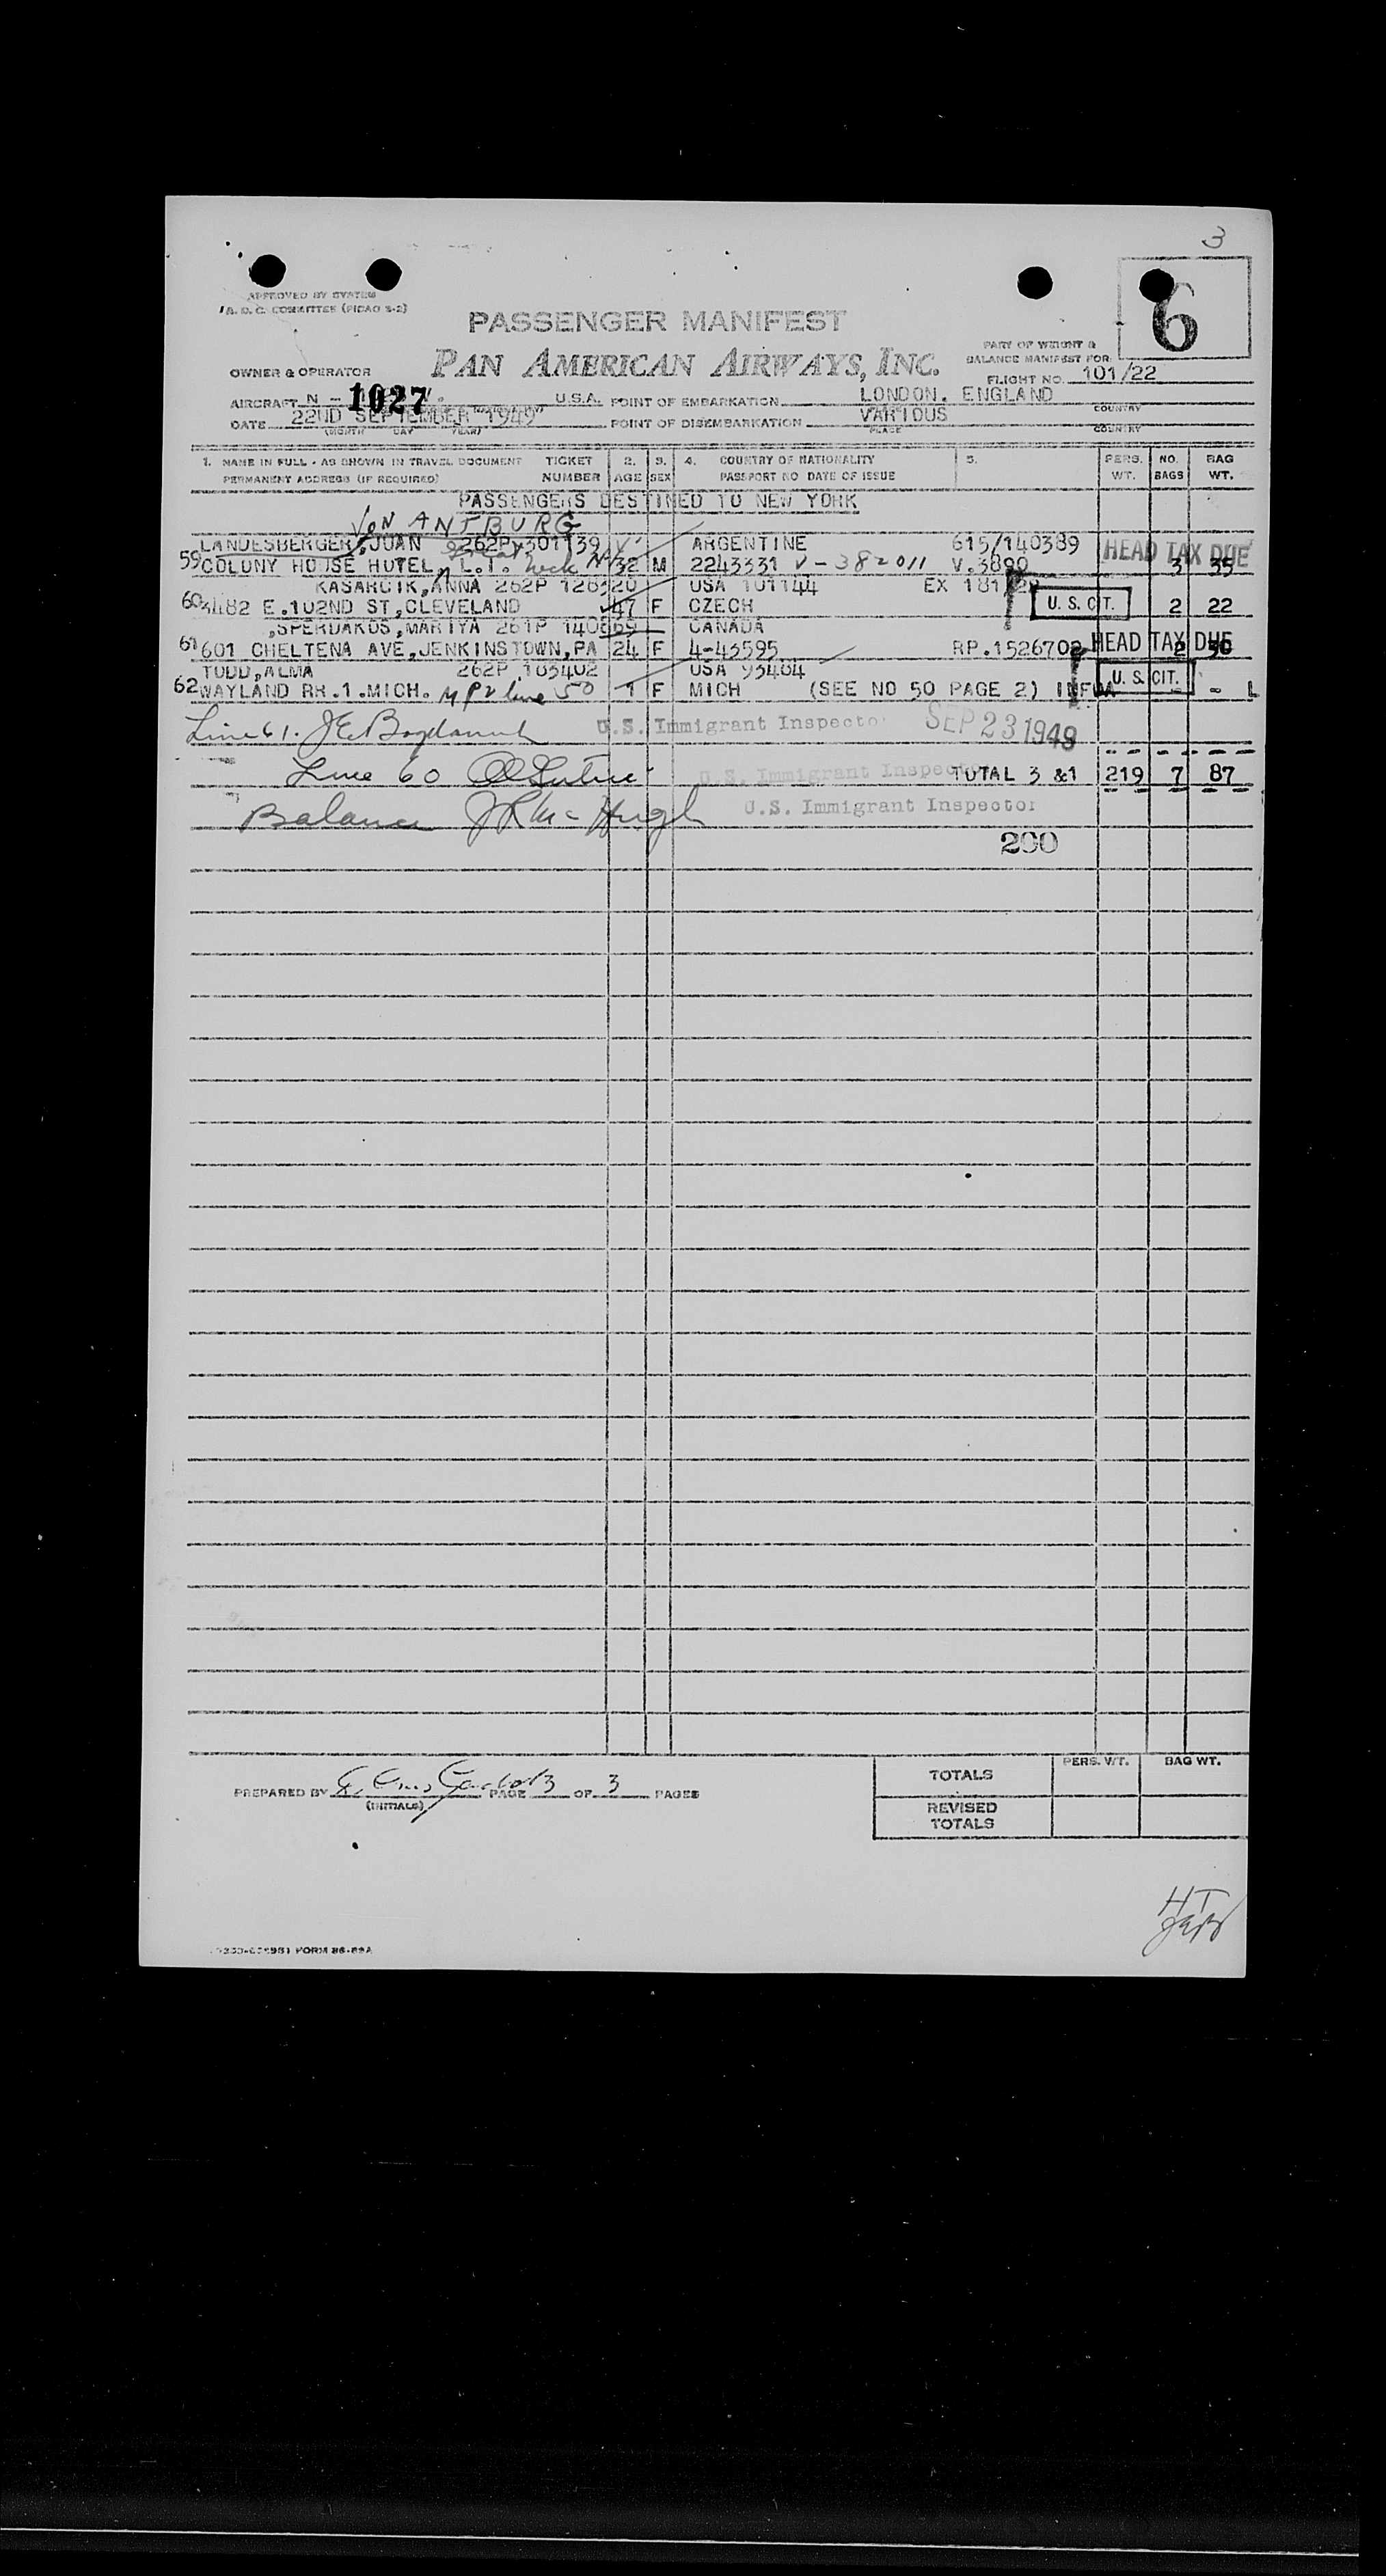 3
6
APPROVED BY SYSTEM
A. D. C. COMMITTEE (PICAO S-2)
PASSENGER MANIFEST
PART OF WEIGHT &
BALANCE MANIFEST FOR
OWNER & OPERATOR PAN AMERICAN AIRWAYS, INC.
FLIGHT NO. 101/22
AIRCRAFT N - 1027 U.S.A. POINT OF EMBARKATION LONDON. ENGLAND
COUNTRY
DATE 22ND SEPTEMBER "1949" POINT OF DISEMBARKATION VARIOUS
(MONTH DAY YEAR) PLACE COUNTRY
1. NAME IN FULL - AS SHOWN IN TRAVEL DOCUMENT TICKET 2. 3. 4. COUNTRY OF NATIONALITY 5. PERS. NO. BAG
PERMANENT ADDRESS (IF REQUIRED) NUMBER AGE SEX PASSPORT NO DATE OF ISSUE WT. BAGS WT.
PASSENGERS DESTINED TO NEW YORK
VON ANTBURG
LANDESBERGER, JUAN 262P 301139 ARGENTINE 615/140389 HEAD TAX DUE
59 COLONY HOUSE HOTEL, L.I. Neck NY 32 M 2243331 V-382011 V.3890 3 35
KASARCIK, ANNA 262P 126320 USA 101144 EX 181
60 3482 E.102ND ST, CLEVELAND 47 F CZECH U. S. CIT. 2 22
,SPERDAKOS, MARITA 261P 140869 CANADA
61 601 CHELTENA AVE, JENKINSTOWN, PA 24 F 4-43595 RP.1526702 HEAD TAX DUE 2 30
TODD, ALMA 262P 103402 USA 93484
62 WAYLAND RR.1.MICH. MP2 line 50 1 F MICH (SEE NO 50 PAGE 2) INFWA U. S. CIT. - - L
Line 61. U.S. Immigrant Inspector SEP 23 1949
Line 60 U.S. Immigrant Inspector TOTAL 3 &1 219 7 87
Balance J R McHugh U.S. Immigrant Inspector
200
PREPARED BY PAGE 3 OF 3 PAGES
(INITIALS)
PERS. WT. BAG WT.
TOTALS
REVISED
TOTALS
HT
FORM 86-89A